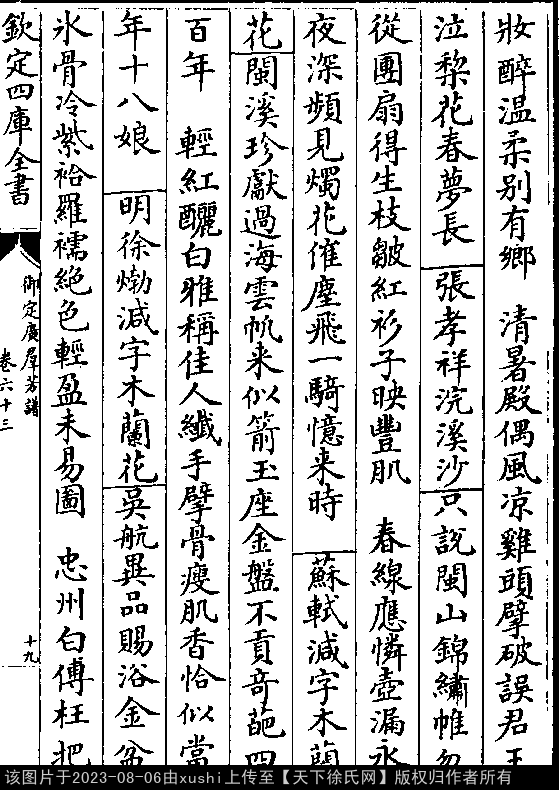 妝醉温柔别有鄉　清暑殿偶風凉雞頭擘破誤君王
泣梨花春夢長　張孝祥浣溪沙　只說閩山錦繡帷忽
從團扇得生枝皺紅衫子映豐肌　春線應憐壺漏永
夜深頻見燭花催塵飛一騎憶来時　蘇軾減字木蘭
花　閩溪珍獻過海雲帆来似箭玉座金盤不貢竒葩四
百年　輕紅釃白雅稱佳人纖手擘骨瘦肌香恰似當
年十八娘　明徐𤊹減字木蘭花　吳航異品賜浴金盆
氷骨冷紫袷羅襦絶色輕盈未易圖　忠州白傅枉把
欽定四庫全書
御定廣羣芳譜
卷六十三
十九
该图片于2023-08-06由xushi上传至【天下徐氏网】版权归作者所有